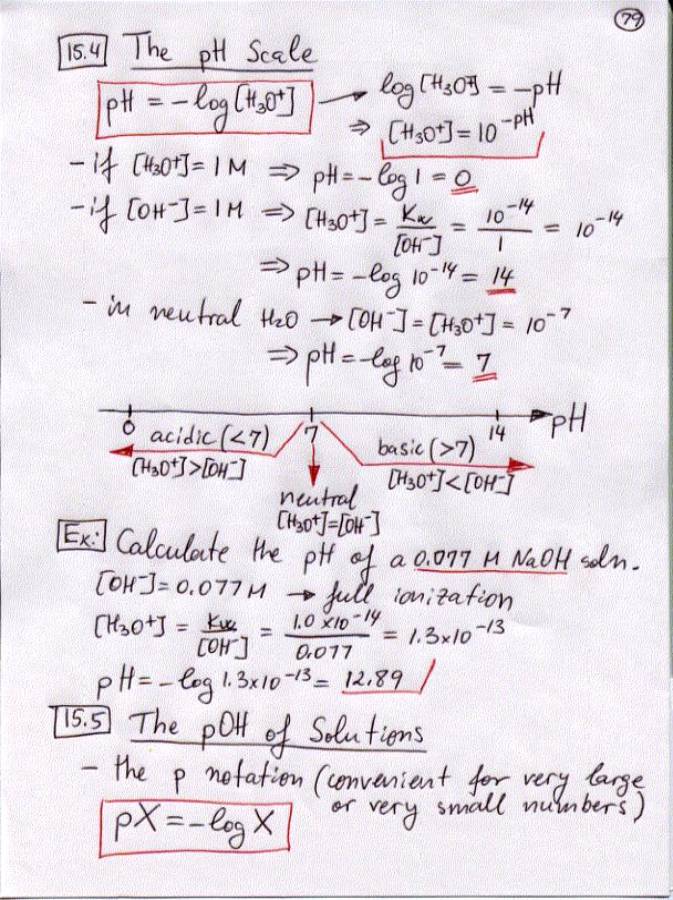 79
15.4 The pH Scale
pH = -log[H₃O⁺] → log[H₃O⁺] = -pH
⇒ [H₃O⁺] = 10^-pH
- if [H₃O⁺] = 1 M ⇒ pH = -log 1 = 0
- if [OH⁻] = 1 M ⇒ [H₃O⁺] = Kw/[OH⁻] = 10⁻¹⁴/1 = 10⁻¹⁴
⇒ pH = -log 10⁻¹⁴ = 14
- in neutral H₂O → [OH⁻] = [H₃O⁺] = 10⁻⁷
⇒ pH = -log 10⁻⁷ = 7
0 7 14 pH
acidic (<7) basic (>7)
[H₃O⁺]>[OH⁻] [H₃O⁺]<[OH⁻]
neutral
[H₃O⁺]=[OH⁻]
Ex: Calculate the pH of a 0.077 M NaOH soln.
[OH⁻] = 0.077 M → full ionization
[H₃O⁺] = Kw/[OH⁻] = 1.0 x10⁻¹⁴/0.077 = 1.3x10⁻¹³
pH = -log 1.3x10⁻¹³ = 12.89
15.5 The pOH of Solutions
- the p notation (convenient for very large
or very small numbers)
pX = -log X